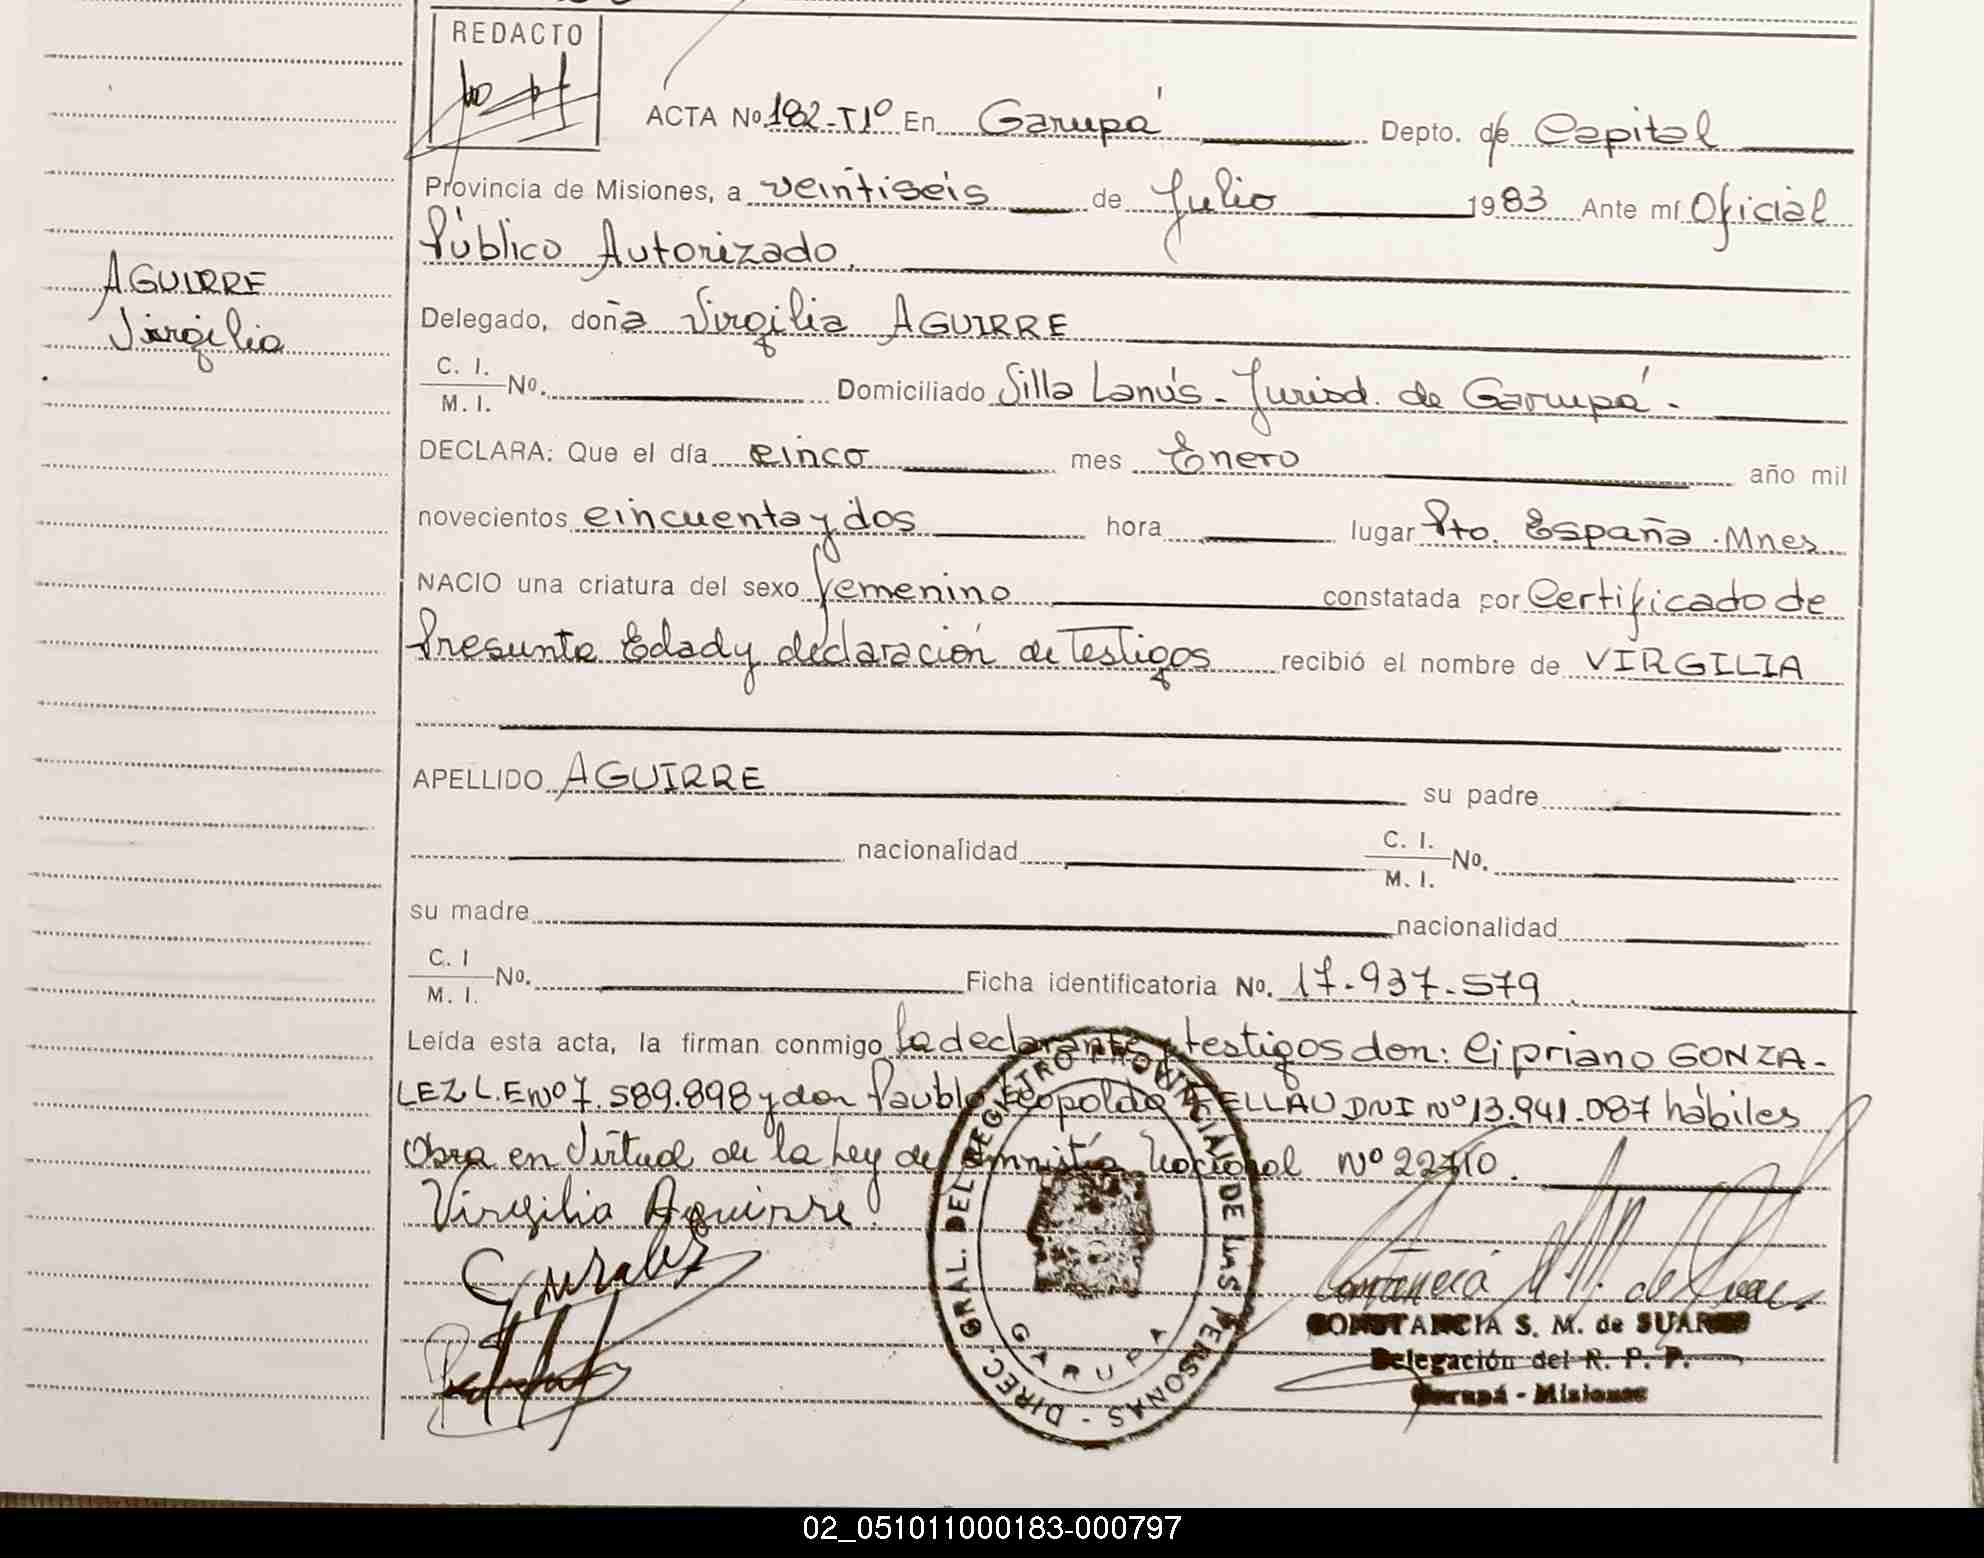 REDACTO
ACTA No. 182-T1º En Garupá Depto. de Capital
Provincia de Misiones, a veintiseis de Julio 1983 Ante mí Oficial
Público Autorizado.
AGUIRRE
Virgilia
Delegado, doña Virgilia AGUIRRE
C. I.
M. I. No. Domiciliado Villa Lanús - Jurisd. de Garupá -
DECLARA: Que el día cinco mes Enero año mil
novecientos cincuenta y dos hora lugar Pto. España - Mnes
NACIO una criatura del sexo femenino constatada por Certificado de
Presunta Edad y declaración de Testigos recibió el nombre de VIRGILIA
APELLIDO AGUIRRE su padre
nacionalidad C. I.
M. I. No.
su madre nacionalidad
C. I
M. I. No. Ficha identificatoria No. 17.937.579
Leída esta acta, la firman conmigo la declarante y testigos don: Cipriano GONZA-
LEZ L.E Nº 7.589.898 y don Paublo Leopoldo FELLAU DNI Nº 13.941.087 hábiles
Obra en Virtud de la Ley de Amnistía Nacional Nº 22410.
Virgilia Aguirre
DIREC. GRAL. DEL REGISTRO PROVINCIAL DE LAS PERSONAS -
GARUPA
CONSTANCIA S. M. de SUAREZ
Delegación del R. P. P.
Garupá - Misiones
02_051011000183-000797